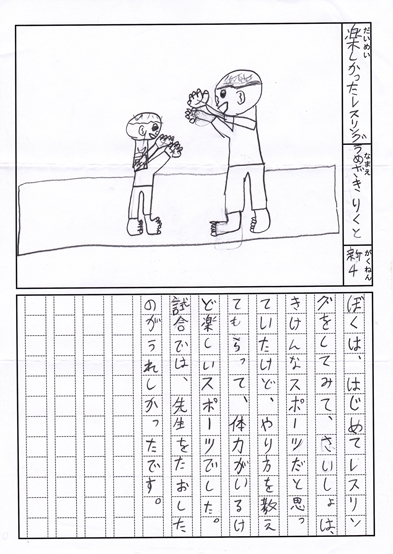 だいめい
楽しかったレスリング
なまえ
うめざき りくと
がくねん
新4
ぼくは、はじめてレスリン
グをしてみて、さいしょは、
きけんなスポーツだと思っ
ていたけど、やり方を教え
てもらって、体力がいるけ
ど楽しいスポーツでした。
試合では、先生をたおした
のがうれしかったです。